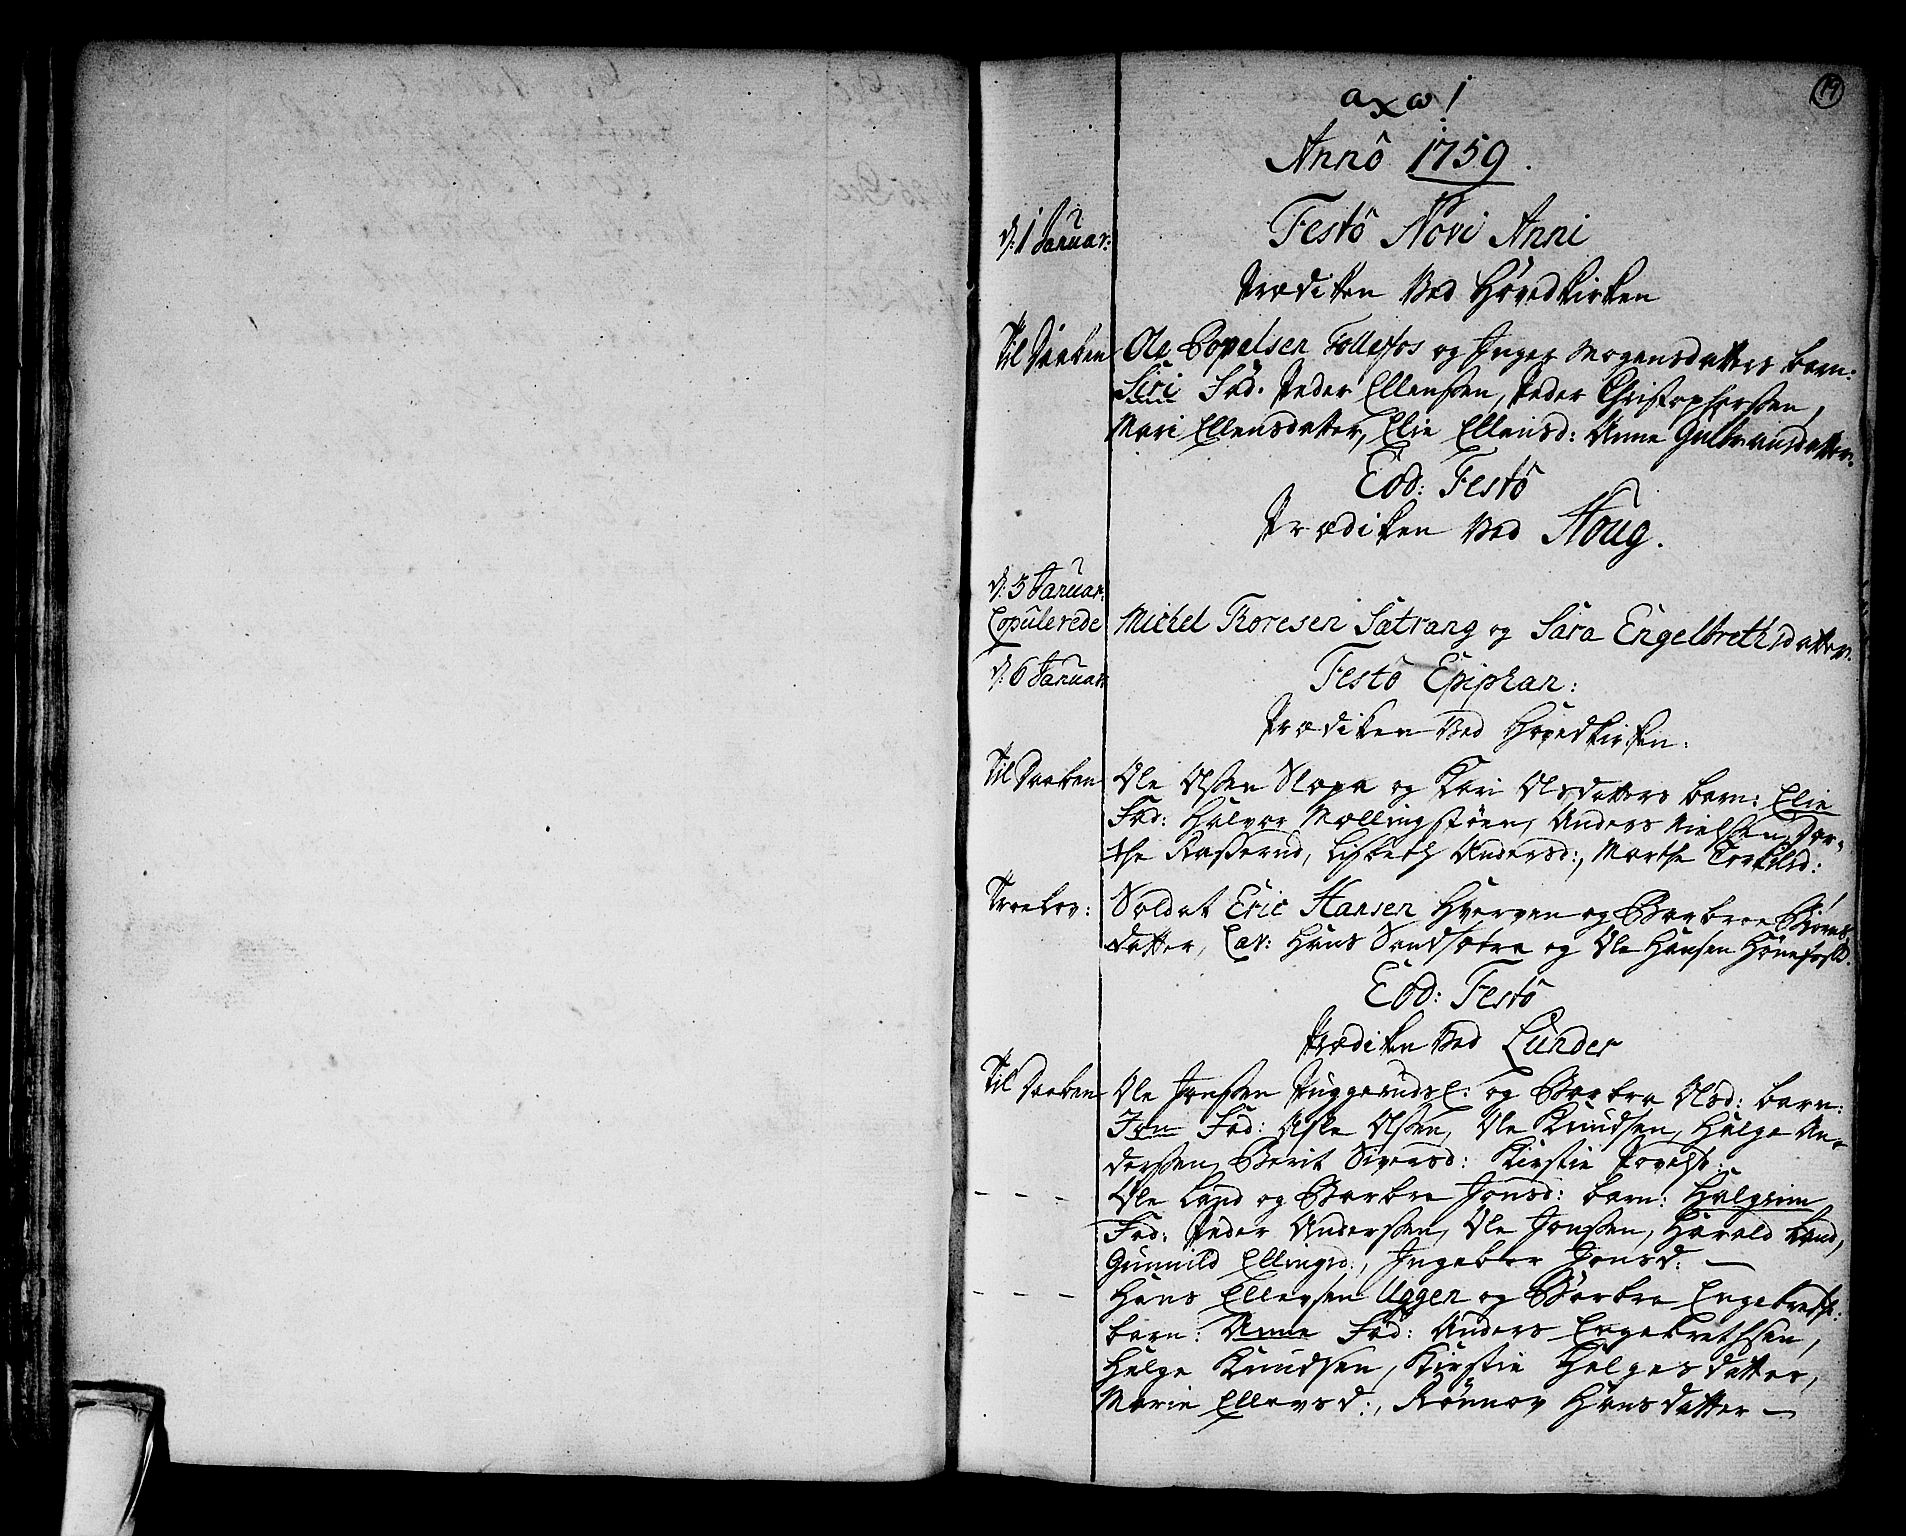 19
a x ω !
Annô 1759.
d: 1 Januar: Festô Novi Anni
Prædiken Ved Hôvedkirken
Til Daaben Ole Popelsen Follesfos og Inger Mogensdatters barn:
Siri Fad. Peder Ellensen, Peder Christophersen,
Mari Ellensdatter, Elie Ellensd: Anne Gulbransdatter.
Eod: Festô
Prædiken Ved Houg.
d: 5 Januar:
Copulerede Michel Thoresen Sætrang og Sara Engelbrethsdatter.
d: 6 Januar: Festô Epiphan:
Prædiken Ved Hovedkirken.
Til Daaben Ole Olsen og Kari Olsdatters barn: Elie
Fad: Halvor Mællingstøen, Anders Nielsen, Dor-
the Raaserud, Lisbeth Andersd:, Marthe Torkilsd:
Troelov: Soldat Eric Hansen Hverven og Barbroe Biørns
datter, Cav: Hans Sandsætre og Ole Hansen Hønefosse.
Eod: Festô
Prædiken Ved Lunder
Til Daaben Ole Jonsen og Barbra Olsd: barn:
Jon Fad: Asle Olsen, Ole Knudsen, Helge An-
dersen, Berit Siversd: Kirstie Povelsd:
- - - Ole Land og Barbra Jonsd: barn: Halgrim
Fad: Peder Andersen, Ole Jonsen, Harald Land,
Gunnild Ellingsd:, Ingebor Jonsd: —
- - - Hans Ellevsen Uggen og Barbra Engebrethsd:
barn: Anne Fad: Anders Engebrethsen,
Helge Knudsen, Kirstie Helgesdatter,
Marie Ellevsd:, Rønnov Hansdatter —